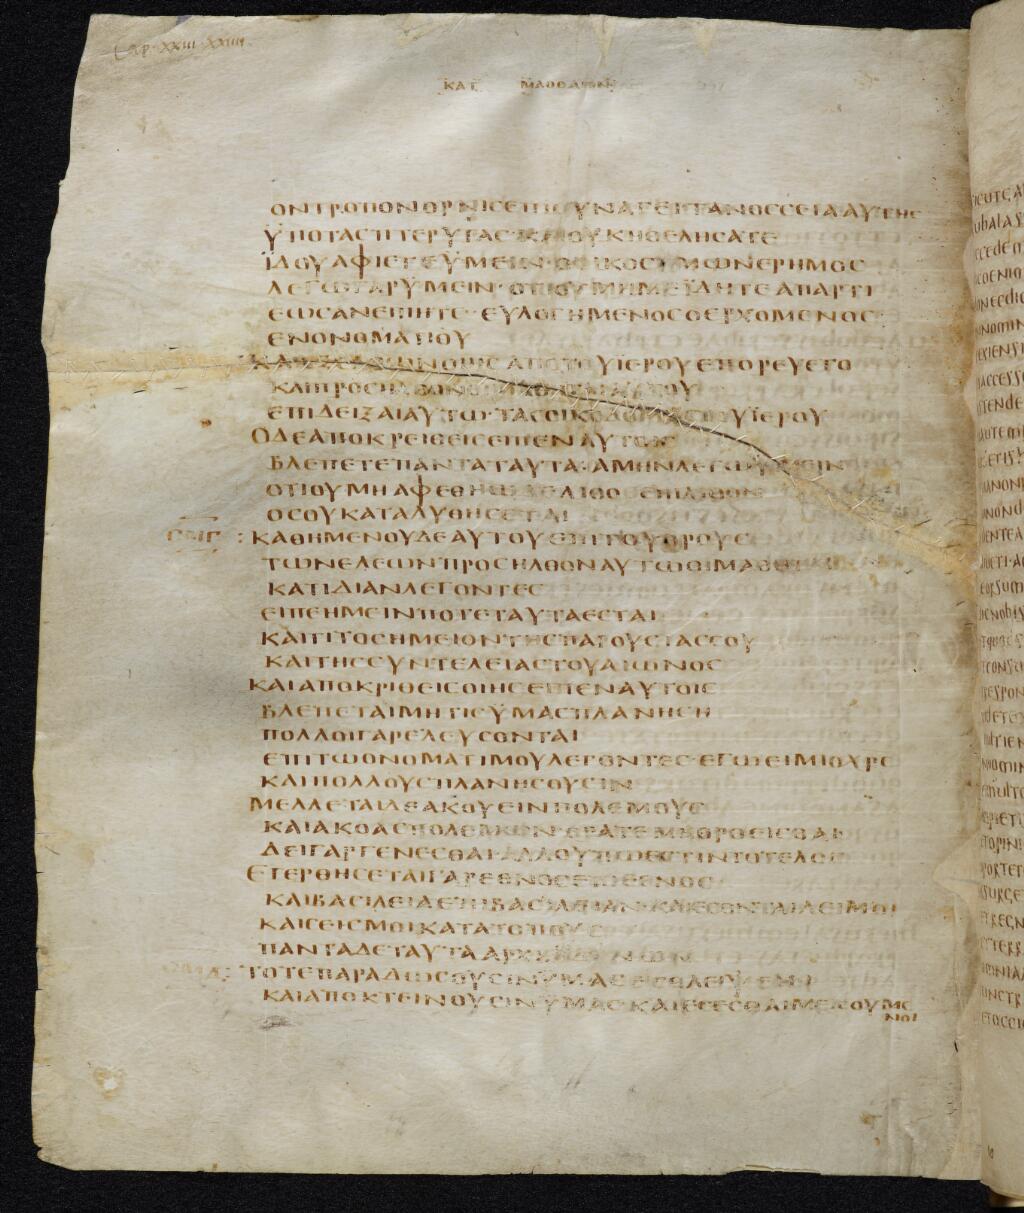 Cap. XXIII. XXIIII.
ΚΑΤ ΜΑΘΘΑΙΟΝ
ΟΝΤΡΟΠΟΝΟΡΝΙϹΕΠΙϹΥΝΑΓΕΙΤΑΝΟϹϹΕΙΑΑΥΤΗϹ
ΥΠΟΤΑϹΠΤΕΡΥΓΑϹ ΚΑΙΟΥΚΗΘΕΛΗϹΑΤΕ
ΙΔΟΥΑΦΙΕΤΕΥΜΕΙΝ ΟΟΙΚΟϹΥΜΩΝΕΡΗΜΟϹ
ΛΕΓΩΓΑΡΥΜΕΙΝ ΟΤΙΟΥΜΗΜΕΪΔΗΤΕΑΠΑΡΤΙ
ΕΩϹΑΝΕΙΠΗΤΕ ΕΥΛΟΓΗΜΕΝΟϹΟΕΡΧΟΜΕΝΟϹ
ΕΝΟΝΟΜΑΤΙΘΥ
ΑΠΟΤΟΥΪΕΡΟΥΕΠΟΡΕΥΕΤΟ
ΚΑΙΠΡΟϹΗΛΘΟΝΟΙΜΑΘΗΤΑΙΑΥΤΟΥ
ΕΠΙΔΕΙΞΑΙΑΥΤΩ ΤΑϹΟΙΚΟΔΟΜΑϹΤΟΥΪΕΡΟΥ
ΟΔΕΑΠΟΚΡΕΙΘΕΙϹΕΙΠΕΝΑΥΤΟΙϹ
ΒΛΕΠΕΤΕΠΑΝΤΑΤΑΥΤΑ ΑΜΗΝΛΕΓΩΥΜΕΙΝ
ΟΤΙΟΥΜΗΑΦΕΘΗΩΔΕΛΙΘΟϹΕΠΙΛΙΘΟΝ
ΟϹΟΥΚΑΤΑΛΥΘΗϹΕΤΑΙ
ϹΜΓ : ΚΑΘΗΜΕΝΟΥΔΕΑΥΤΟΥΕΠΙΤΟΥΟΡΟΥϹ
ΤΩΝΕΛΕΩΝΠΡΟϹΗΛΘΟΝΑΥΤΩΟΙΜΑΘΗΤΑΙ
ΚΑΤΙΔΙΑΝΛΕΓΟΝΤΕϹ
ΕΙΠΕΗΜΕΙΝΠΟΤΕΤΑΥΤΑΕϹΤΑΙ
ΚΑΙΤΙΤΟϹΗΜΕΙΟΝΤΗϹΠΑΡΟΥϹΙΑϹϹΟΥ
ΚΑΙΤΗϹϹΥΝΤΕΛΕΙΑϹΤΟΥΑΙΩΝΟϹ
ΚΑΙΑΠΟΚΡΙΘΕΙϹΟΙΗϹΕΙΠΕΝΑΥΤΟΙϹ
ΒΛΕΠΕΤΑΙΜΗΤΙϹΥΜΑϹΠΛΑΝΗϹΗ
ΠΟΛΛΟΙΓΑΡΕΛΕΥϹΟΝΤΑΙ
ΕΠΙΤΩΟΝΟΜΑΤΙΜΟΥΛΕΓΟΝΤΕϹ ΕΓΩΕΙΜΙΟΧΡϹ
ΚΑΙΠΟΛΛΟΥϹΠΛΑΝΗϹΟΥϹΙΝ
ΜΕΛΛΕΤΑΙΔΕΑΚΟΥΕΙΝΠΟΛΕΜΟΥϹ
ΚΑΙΑΚΟΑϹΠΟΛΕΜΩΝ ΟΡΑΤΕΜΗΘΡΟΕΙϹΘΑΙ
ΔΕΙΓΑΡΓΕΝΕϹΘΑΙ ΑΛΛΟΥΠΩΕϹΤΙΝΤΟΤΕΛΟϹ
ΕΓΕΡΘΗϹΕΤΑΙΓΑΡΕΘΝΟϹΕΠΙΕΘΝΟϹ
ΚΑΙΒΑϹΙΛΕΙΑΕΠΙΒΑϹΙΛΕΙΑΝ ΚΑΙΕϹΟΝΤΑΙΛΕΙΜΟΙ
ΚΑΙϹΕΙϹΜΟΙΚΑΤΑΤΟΠΟΥϹ
ΠΑΝΤΑΔΕΤΑΥΤΑΑΡΧΗΩΔΙΝΩΝ
ΤΟΤΕΠΑΡΑΔΩϹΟΥϹΙΝΥΜΑϹΕΙϹΘΛΕΙΨΕΙΝ
ΚΑΙΑΠΟΚΤΕΙΝΟΥϹΙΝΥΜΑϹ ΚΑΙΕϹΕϹΘΑΙΜΕΙϹΟΥΜΕ
ΝΟΙ